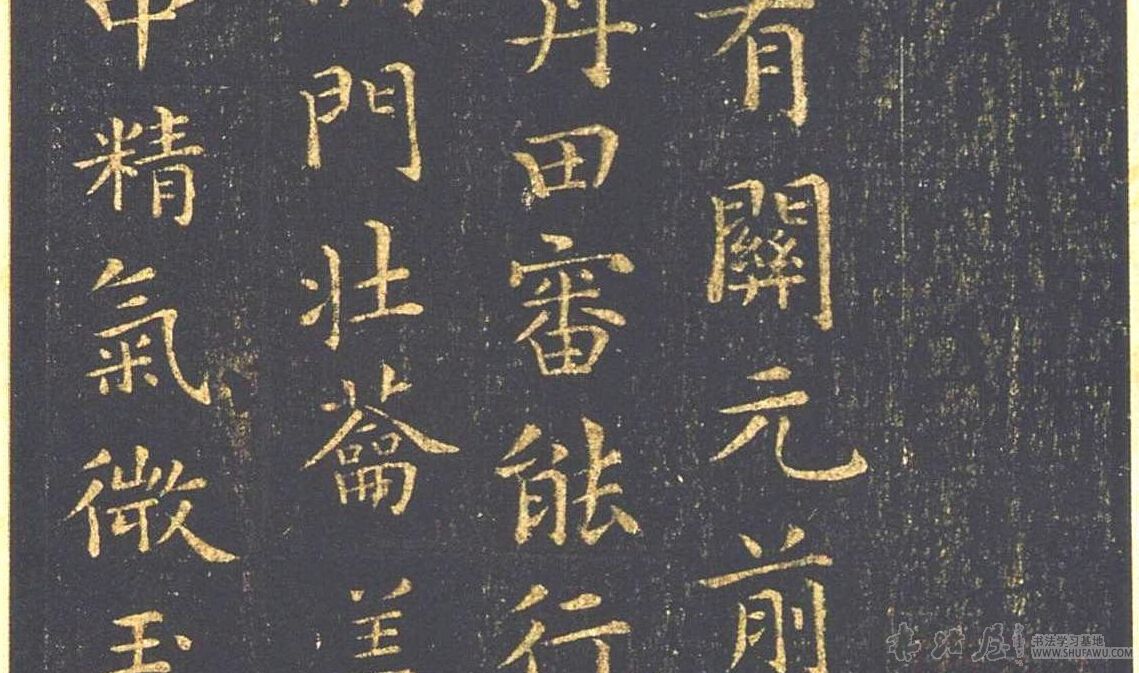 有關元前
丹田審能行
門壯籥
中精氣微玉
书法屋
书法学习基地
WWW.SHUFAWU.COM